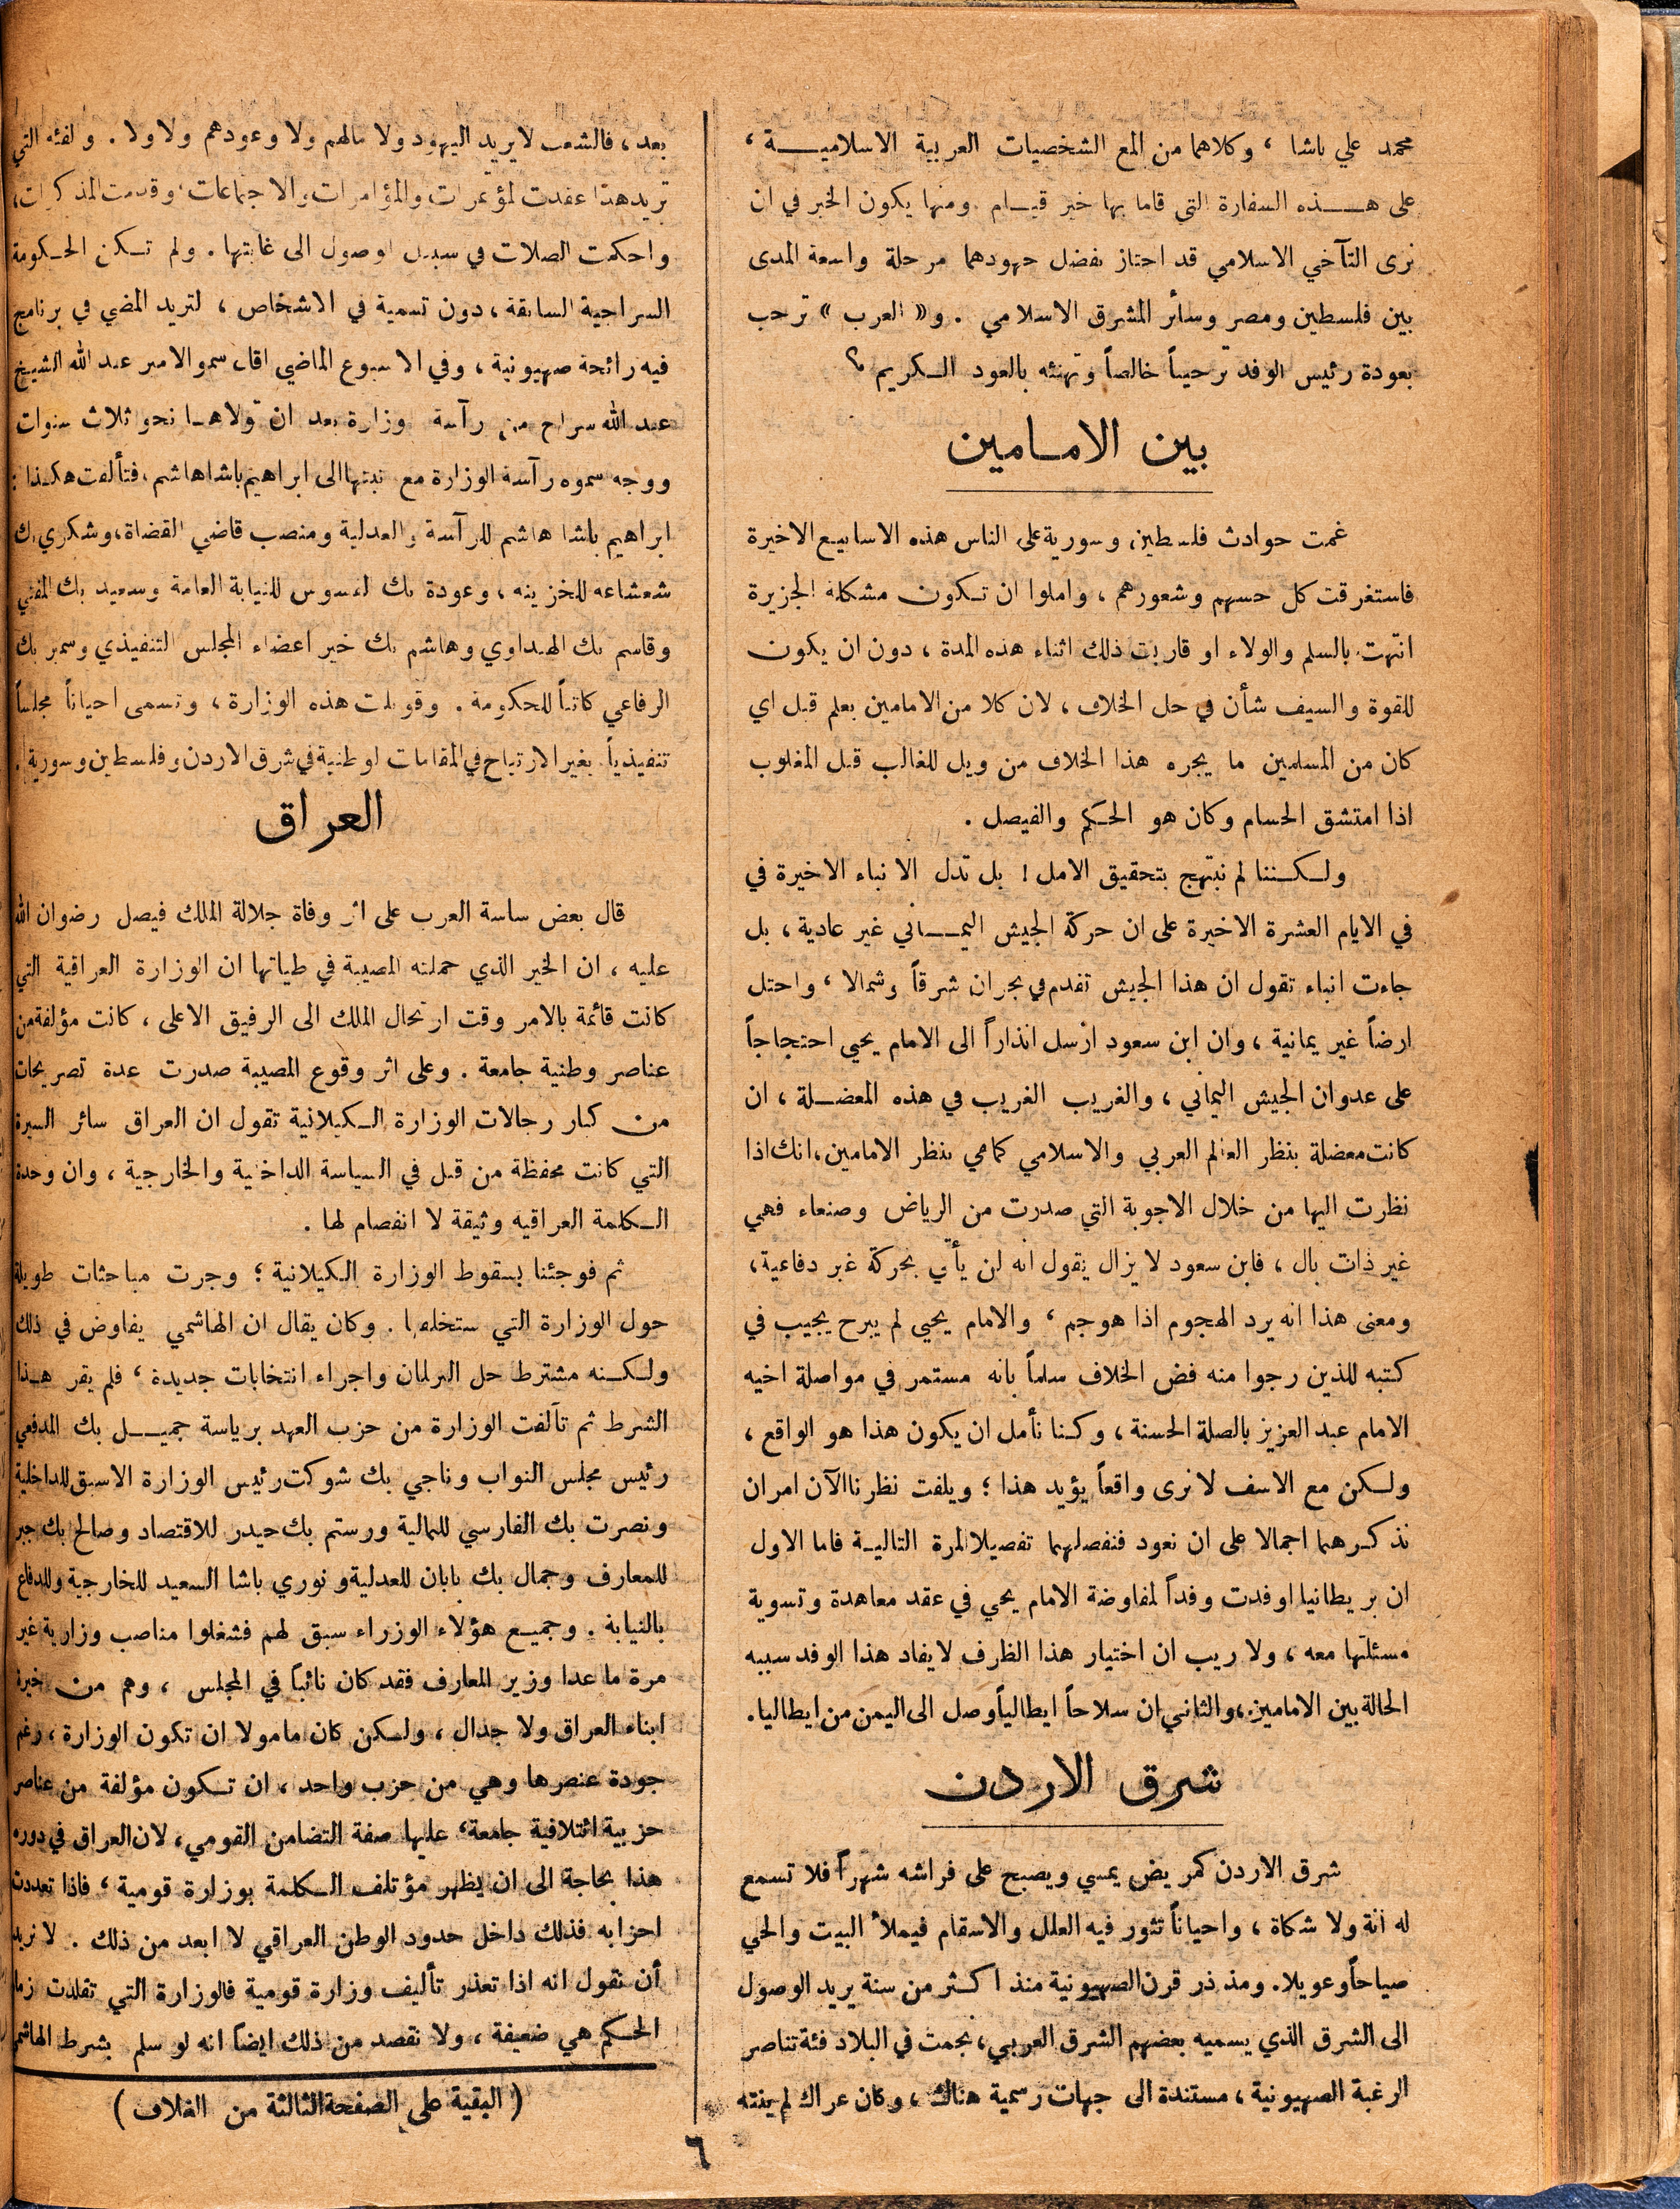 محمد علي باشا ، وكلاهما من المع الشخصيات العربية الاسلاميـــة ،
على هـــذه السفارة التي قاما بها خير قيــام . ومنها يكون الخير في ان
نرى التآخي الاسلامي قد اجتاز بفضل جهودهما مرحلة واسعة المدى
بين فلسطين ومصر وسائر المشرق الاسلامي . و« العرب » ترحب
بعودة رئيس الوفد ترحيباً خالصاً وتهنئه بالعود الـكريم ؟
بين الامـامين
غمت حوادث فلسطين وسورية على الناس هذه الاسابيع الاخيرة
فاستغرقت كل حسهم وشعورهم ، واملوا ان تـكون مشكلة الجزيرة
انتهت بالسلم والولاء او قاربت ذلك اثناء هذه المدة ، دون ان يكون
للقوة والسيف شأن في حل الخلاف ، لان كلا من الامامين يعلم قبل اي
كان من المسلمين ما يجره هذا الخلاف من ويل للغالب قبل المغلوب
اذا امتشق الحسام وكان هو الحـكم والفيصل .
ولـكـننا لم نبتهج بتحقيق الامل ! بل تدل الانباء الاخيرة في
في الايام العشرة الاخيرة على ان حركة الجيش اليمـــاني غير عادية ، بل
جاءت انباء تقول ان هذا الجيش تقدم في نجران شرقاً وشمالا ، واحتل
ارضاً غير يمانية ، وان ابن سعود ارسل انذاراً الى الامام يحيي احتجاجاً
على عدوان الجيش اليماني ، والغريب الغريب في هذه المعضـلة ، ان
كانت معضلة بنظر العالم العربي والاسلامي كما هي بنظر الامامين ، انك اذا
نظرت اليها من خلال الاجوبة التي صدرت من الرياض وصنعاء فهي
غير ذات بال ، فابن سعود لا يزال يقول انه لن يأتي بحركة غير دفاعية ،
ومعنى هذا انه يرد الهجوم اذا هوجم ، والامام يحيي لم يبرح يجيب في
كتبه للذين رجوا منه فض الخلاف سلماً بانه مستمر في مواصلة اخيه
الامام عبد العزيز بالصلة الحسنة ، وكـنا نأمل ان يكون هذا هو الواقع ،
ولـكن مع الاسف لا نرى واقعاً يؤيد هذا ؛ ويلفت نظرنا الآن امران
نذكـرهما اجمالا على ان نعود فنفصلهما تفصيلا المرة التاليـة فاما الاول
ان بريطانيا اوفدت وفداً لمفاوضة الامام يحيي في عقد معاهدة وتسوية
مسئلتها معه ، ولا ريب ان اختيار هذا الظرف لايفاد هذا الوفد سببه
الحالة بين الامامين ، والثاني ان سلاحاً ايطالياً وصل الى اليمن من ايطاليا .
شرق الاردن
شرق الاردن كمريض يمسي ويصبح على فراشه شهراً فلا تسمع
له انة ولا شكاة ، واحياناً تثور فيه العلل والاسقام فيملأ البيت والحي
صياحاً وعويلا . ومذ ذر قرن الصهيونية منذ اكـثر من سنة يريد الوصول
الى الشرق الذي يسميه بعضهم الشرق العربي ، نجمت في البلاد فئة تناصر
الرغبة الصهيونية ، مستندة الى جهات رسمية هناك ، وكان عراك لم ينته
بعد ، فالشعب لا يريد اليهود ولا مالهم ولا وعودهم ولا ولا . ولفئة التي
تريدهذا عقدت لمؤتمرات والمؤامرات والاجتماعات وقدمت المذكرات ،
واحكمت الصلات في سبيل الوصول الى غايتها . ولم تـكن الحـكومة
السراجية السابقة ، دون تسمية في الاشخاص ، لتريد المضي في برنامج
فيه رائحة صهيونية ، وفي الاسبوع الماضي اقال سمو الامير عبد الله الشيخ
عبد الله سراج من رآسة وزارة بعد ان تولاهـا نحو ثلاث سنوات
ووجه سموه رآسة الوزارة مع نيتها الى ابراهيم باشا هاشم ، فتألفت هكـذا :
ابراهيم باشا هاشم للرآسة والعدلية ومنصب قاضي القضاة ، وشكري بك
شعشاعه للخزينه ، وعودة بك القسوس للنيابة العامة وسعيد بك المفتي
وقاسم بك الهنداوي وهاشم بك خير اعضاء المجلس التنفيذي وسمير بك
الرفاعي كاتباً للحكومة . وقوبلت هذه الوزارة ، وتسمى احياناً مجلساً
تنفيذياً بغير الارتياح في المقامات لوطنية في شرق الاردن وفلسطين وسورية .
العراق
قال بعض ساسة العرب على اثر وفاة جلالة الملك فيصل رضوان الله
عليه ، ان الخير الذي حملته المصيبة في طياتها ان الوزارة العراقية التي
كانت قائمة بالامر وقت ارتحال الملك الى الرفيق الاعلى ، كانت مؤلفة من
عناصر وطنية جامعة . وعلى اثر وقوع المصيبة صدرت عدة تصريحات
من كبار رجالات الوزارة الـكيلانية تقول ان العراق سائر السيرة
التي كانت محفظة من قبل في السياسة الداخلية والخارجية ، وان وحدة
الـكلمة العراقيه وثيقة لا انفصام لها .
ثم فوجئنا بسقوط الوزارة الـكيلانية ؛ وجرت مباحثات طويلة
حول الوزارة التي ستخلفها . وكان يقال ان الهاشمي يفاوض في ذلك
ولـكـنه مشترط حل البرلمان واجراء انتخابات جديدة ، فلم يقر هـذا
الشرط ثم تآلفت الوزارة من حزب العهد برياسة جميـــل بك المدفعي
رئيس مجلس النواب وناجي بك شوكت رئيس الوزارة الاسبق للداخلية
ونصرت بك الفارسي للمالية ورستم بك حيدر للاقتصاد وصالح بك جبر
للمعارف وجمال بك بابان للعدلية ونوري باشا السعيد للخارجية وللدفاع
بالنيابة . وجميـع هؤلاء الوزراء سبق لهم فشغلوا مناصب وزارية غير
مرة ما عدا وزير المعارف فقد كان نائباً في المجلس ، وهم من خيرة
ابناء العراق ولا جدال ، ولـكن كان مامولا ان تكون الوزارة ، رغم
جودة عنصرها وهي من حزب واحد ، ان تـكون مؤلفة من عناصر
حزبية ائتلافية جامعة ، عليها صفة التضامن القومي ، لان العراق في دوره
هذا بحاجة الى ان يظهر مؤتلف الـكلمة بوزارة قومية ، فاذا تعددت
احزابه فذلك داخل حدود الوطن العراقي لا ابعد من ذلك . لا نريد
أن نقول انه اذا تعذر تأليف وزارة قومية فالوزارة التي تقلدت زمام
الحـكم هي ضعيفة ، ولا نقصد من ذلك ايضاً انه لو سلم بشرط الهاشمي
( البقية على الصفحة الثالثة من الغلاف )
٦